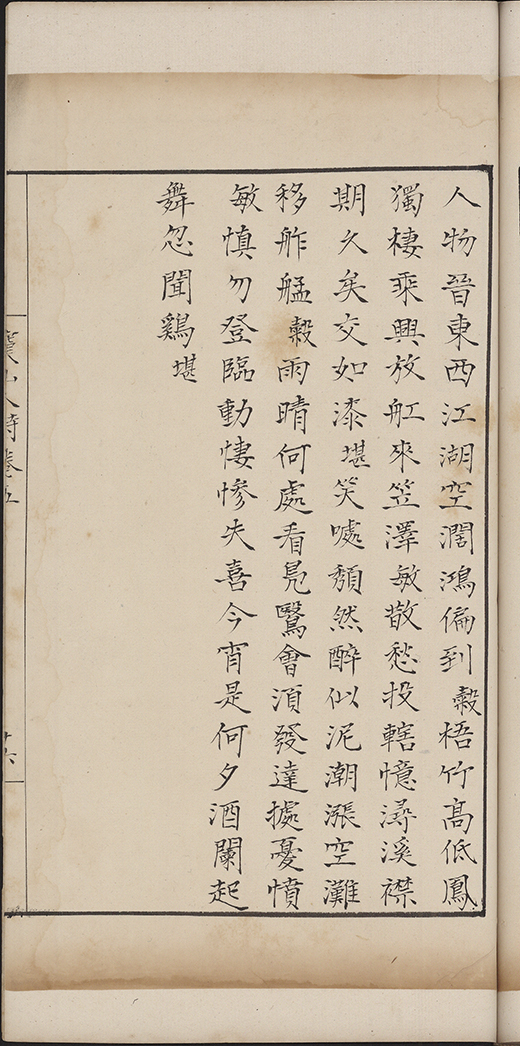 人物晉東西江湖空濶鴻偏到穀梧竹高低鳳
獨棲乘興放舡來笠澤敏散愁投轄憶潯溪襟
期久矣交如漆堪笑噱頽然醉似泥潮漲空灘
移舴艋穀雨晴何處看鳧鷖會須發達據憂憤
敏慎勿登臨動悽慘失喜今宵是何夕酒闌起
舞忽聞鷄堪
山人詩卷五